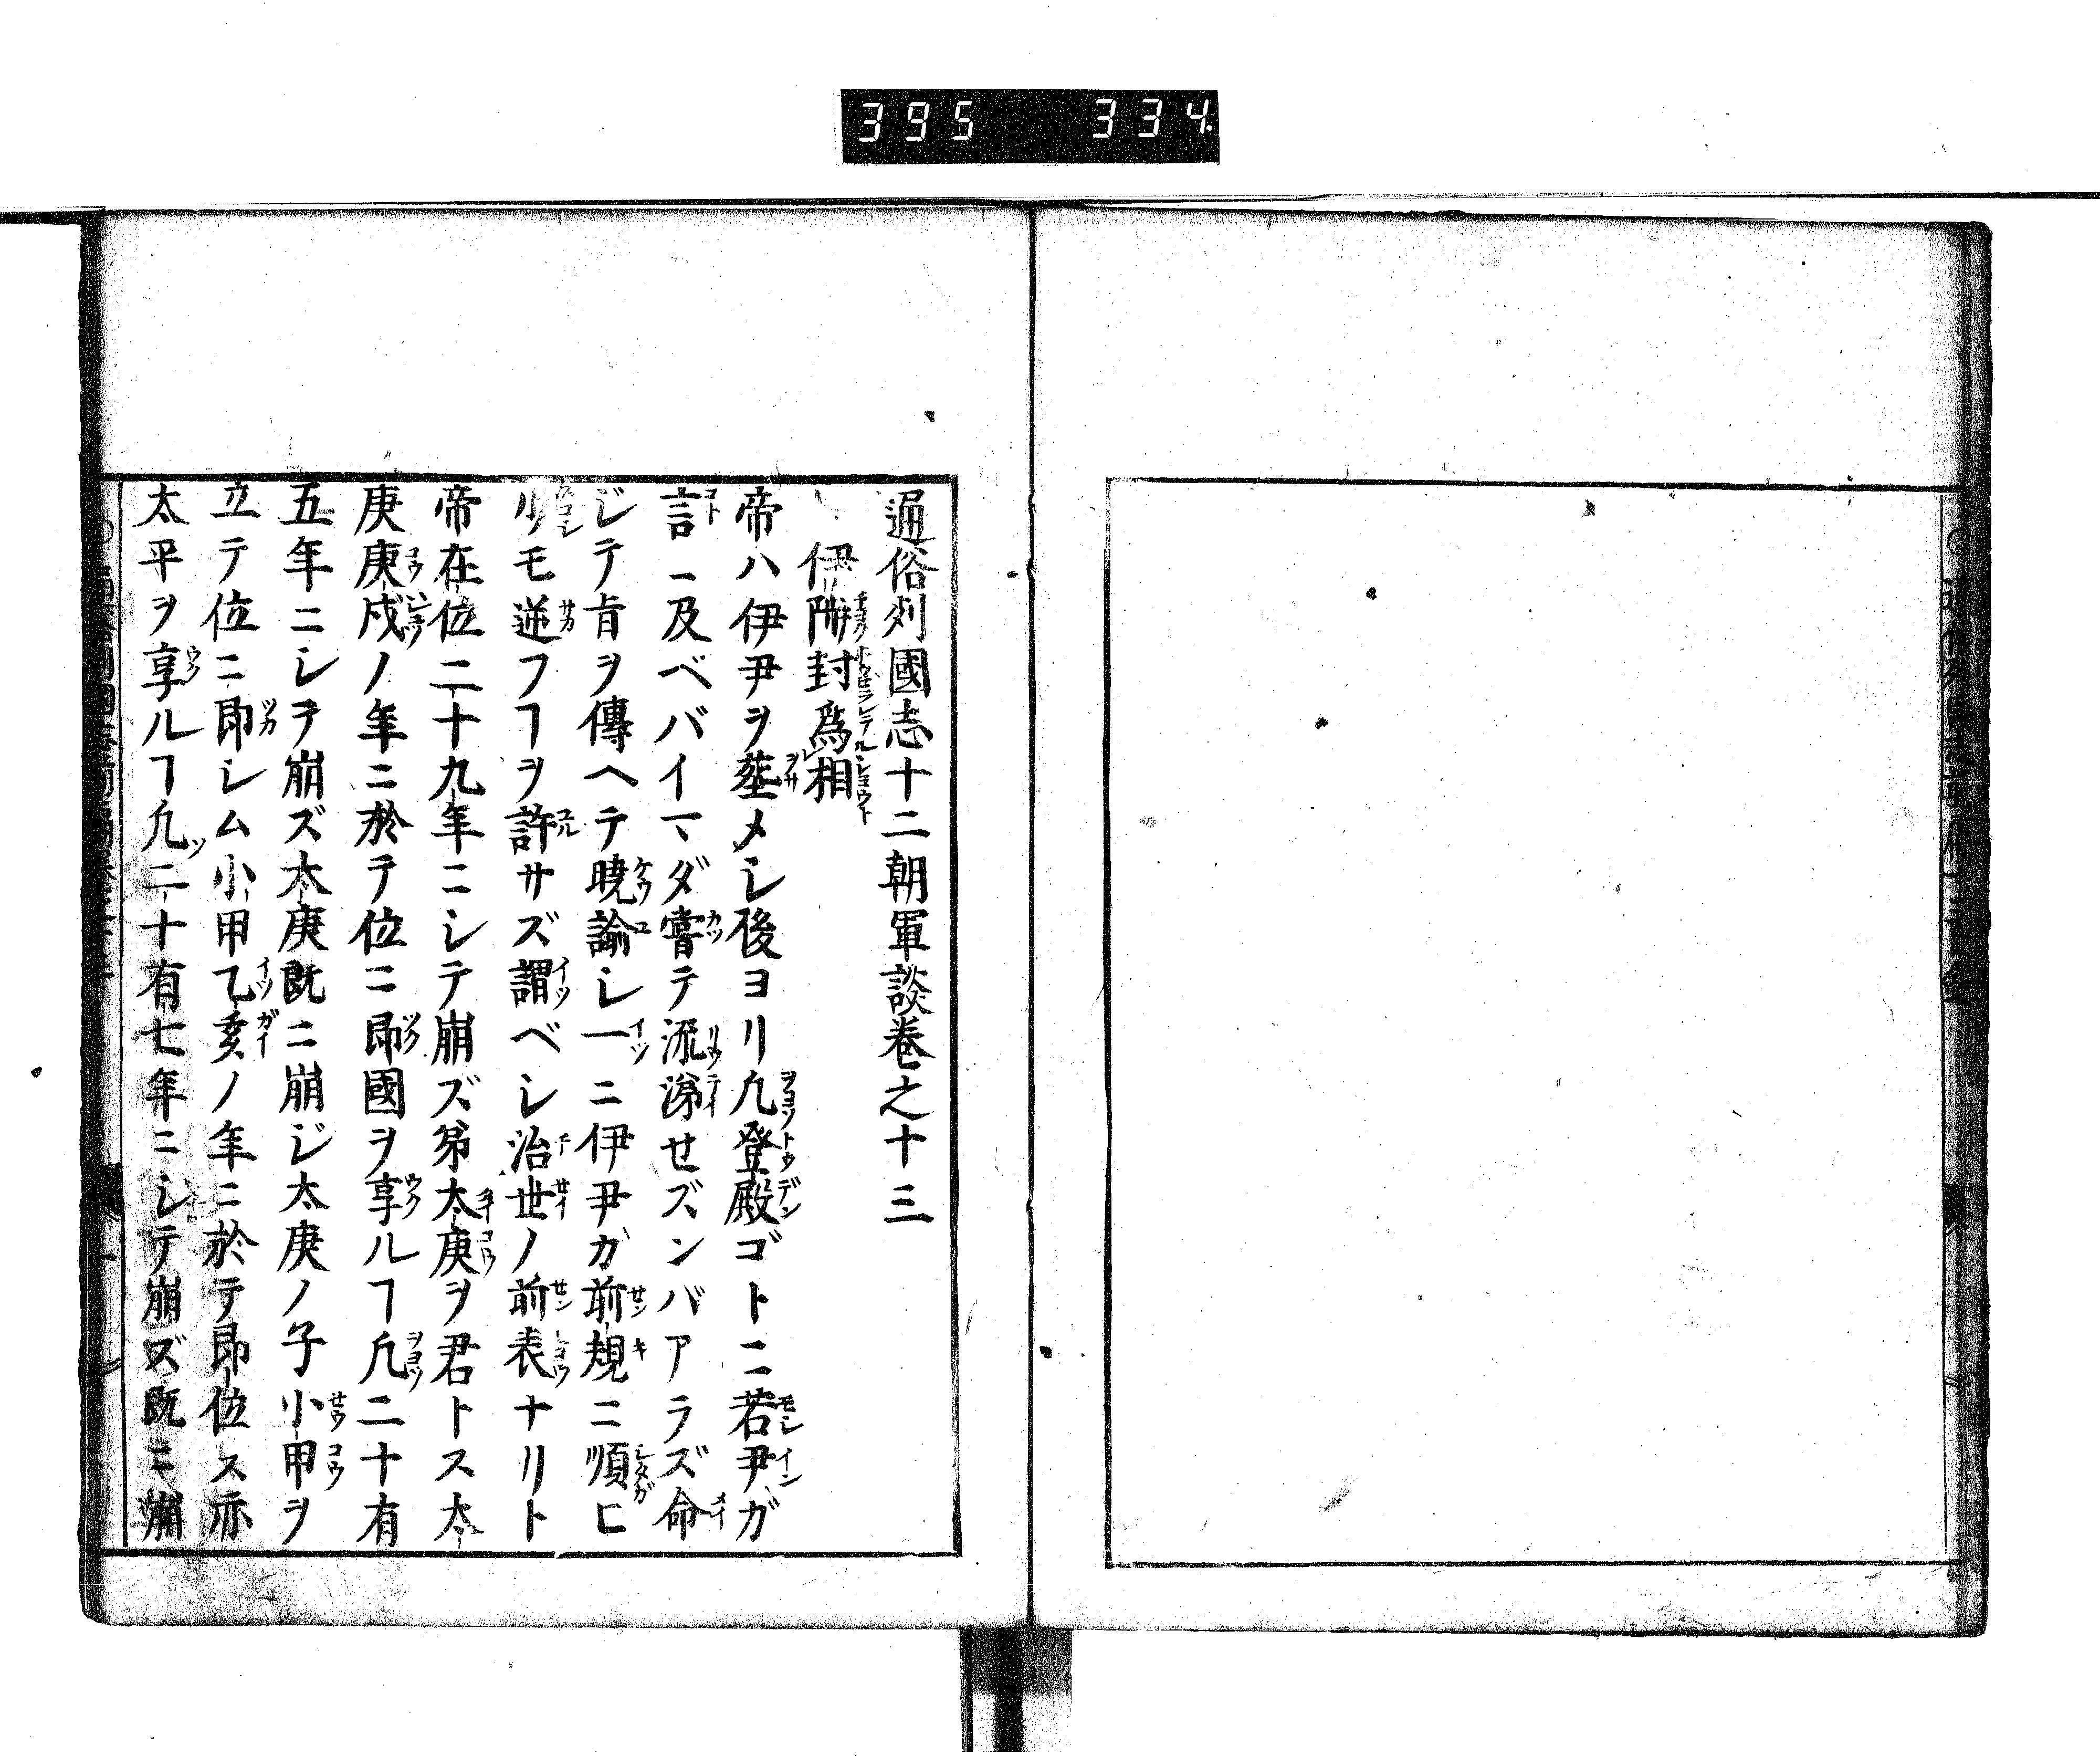 395 334
通俗列國志十二朝軍談卷之十三
伊陟封爲相
帝ハ伊尹ヲ塟メシ後ヨリ凢登殿ゴトニ若尹ガ
言ニ及ベバイマダ嘗テ流涕せズンバアラズ命
ジテ旨ヲ傳ヘテ曉諭シ一ニ伊尹ガ前規ニ順ヒ
少モ逆フヿヲ許サズ謂ベシ治世ノ前表ナリト
帝在位二十九年ニシテ崩ズ弟太庚ヲ君トス太
庚庚戌ノ年ニ於テ位ニ即國ヲ享ルヿ凢二十有
五年ニシテ崩ズ太庚既ニ崩ジ太庚ノ子小甲ヲ
立テ位ニ即シム小甲乙亥ノ年ニ於テ即位ス亦
太平ヲ享ルヿ凢二十有七年ニシテ崩ズ既ニ崩